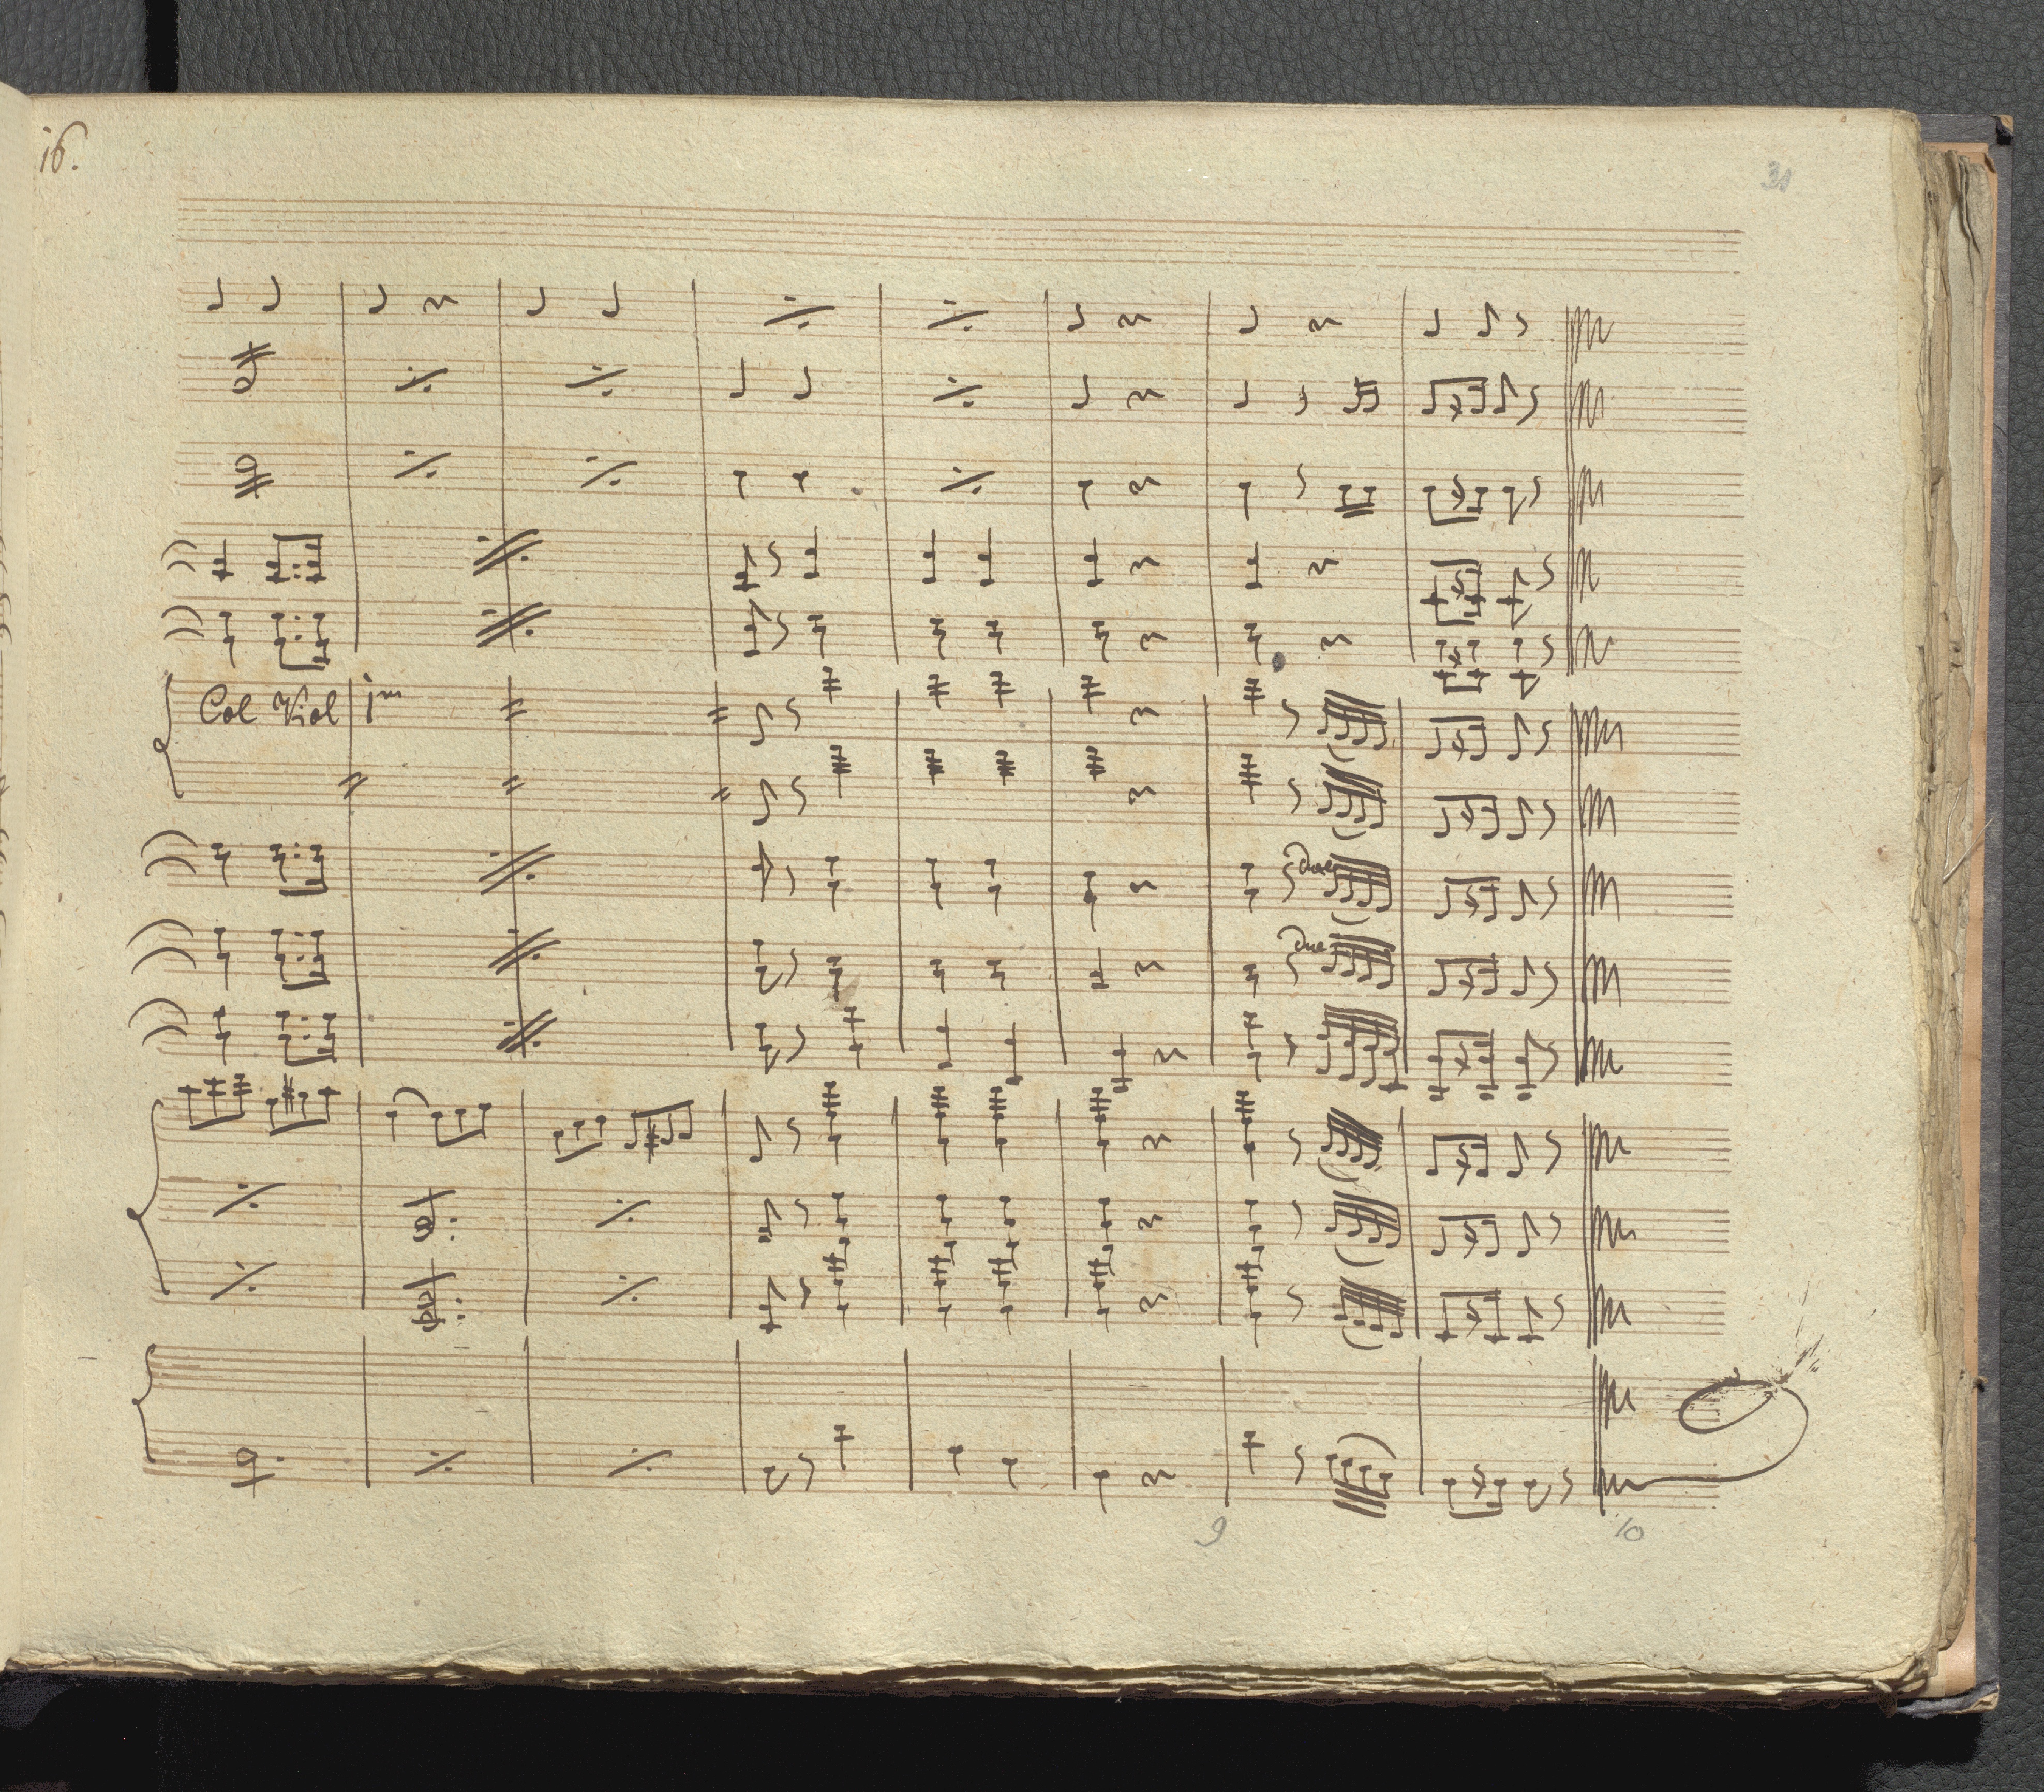 16.
31
Col Viol 1mo
due
due
9
10